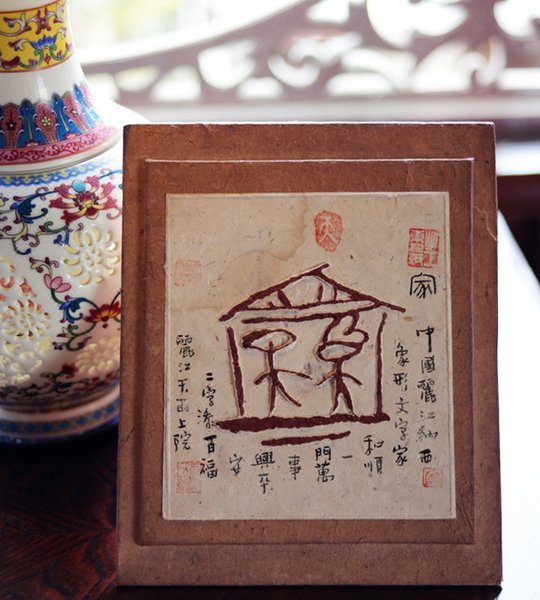 家
中國麗江納西
象形文字家
和順
一
門萬
事
興平
安
二字添百福
麗江天雨上院